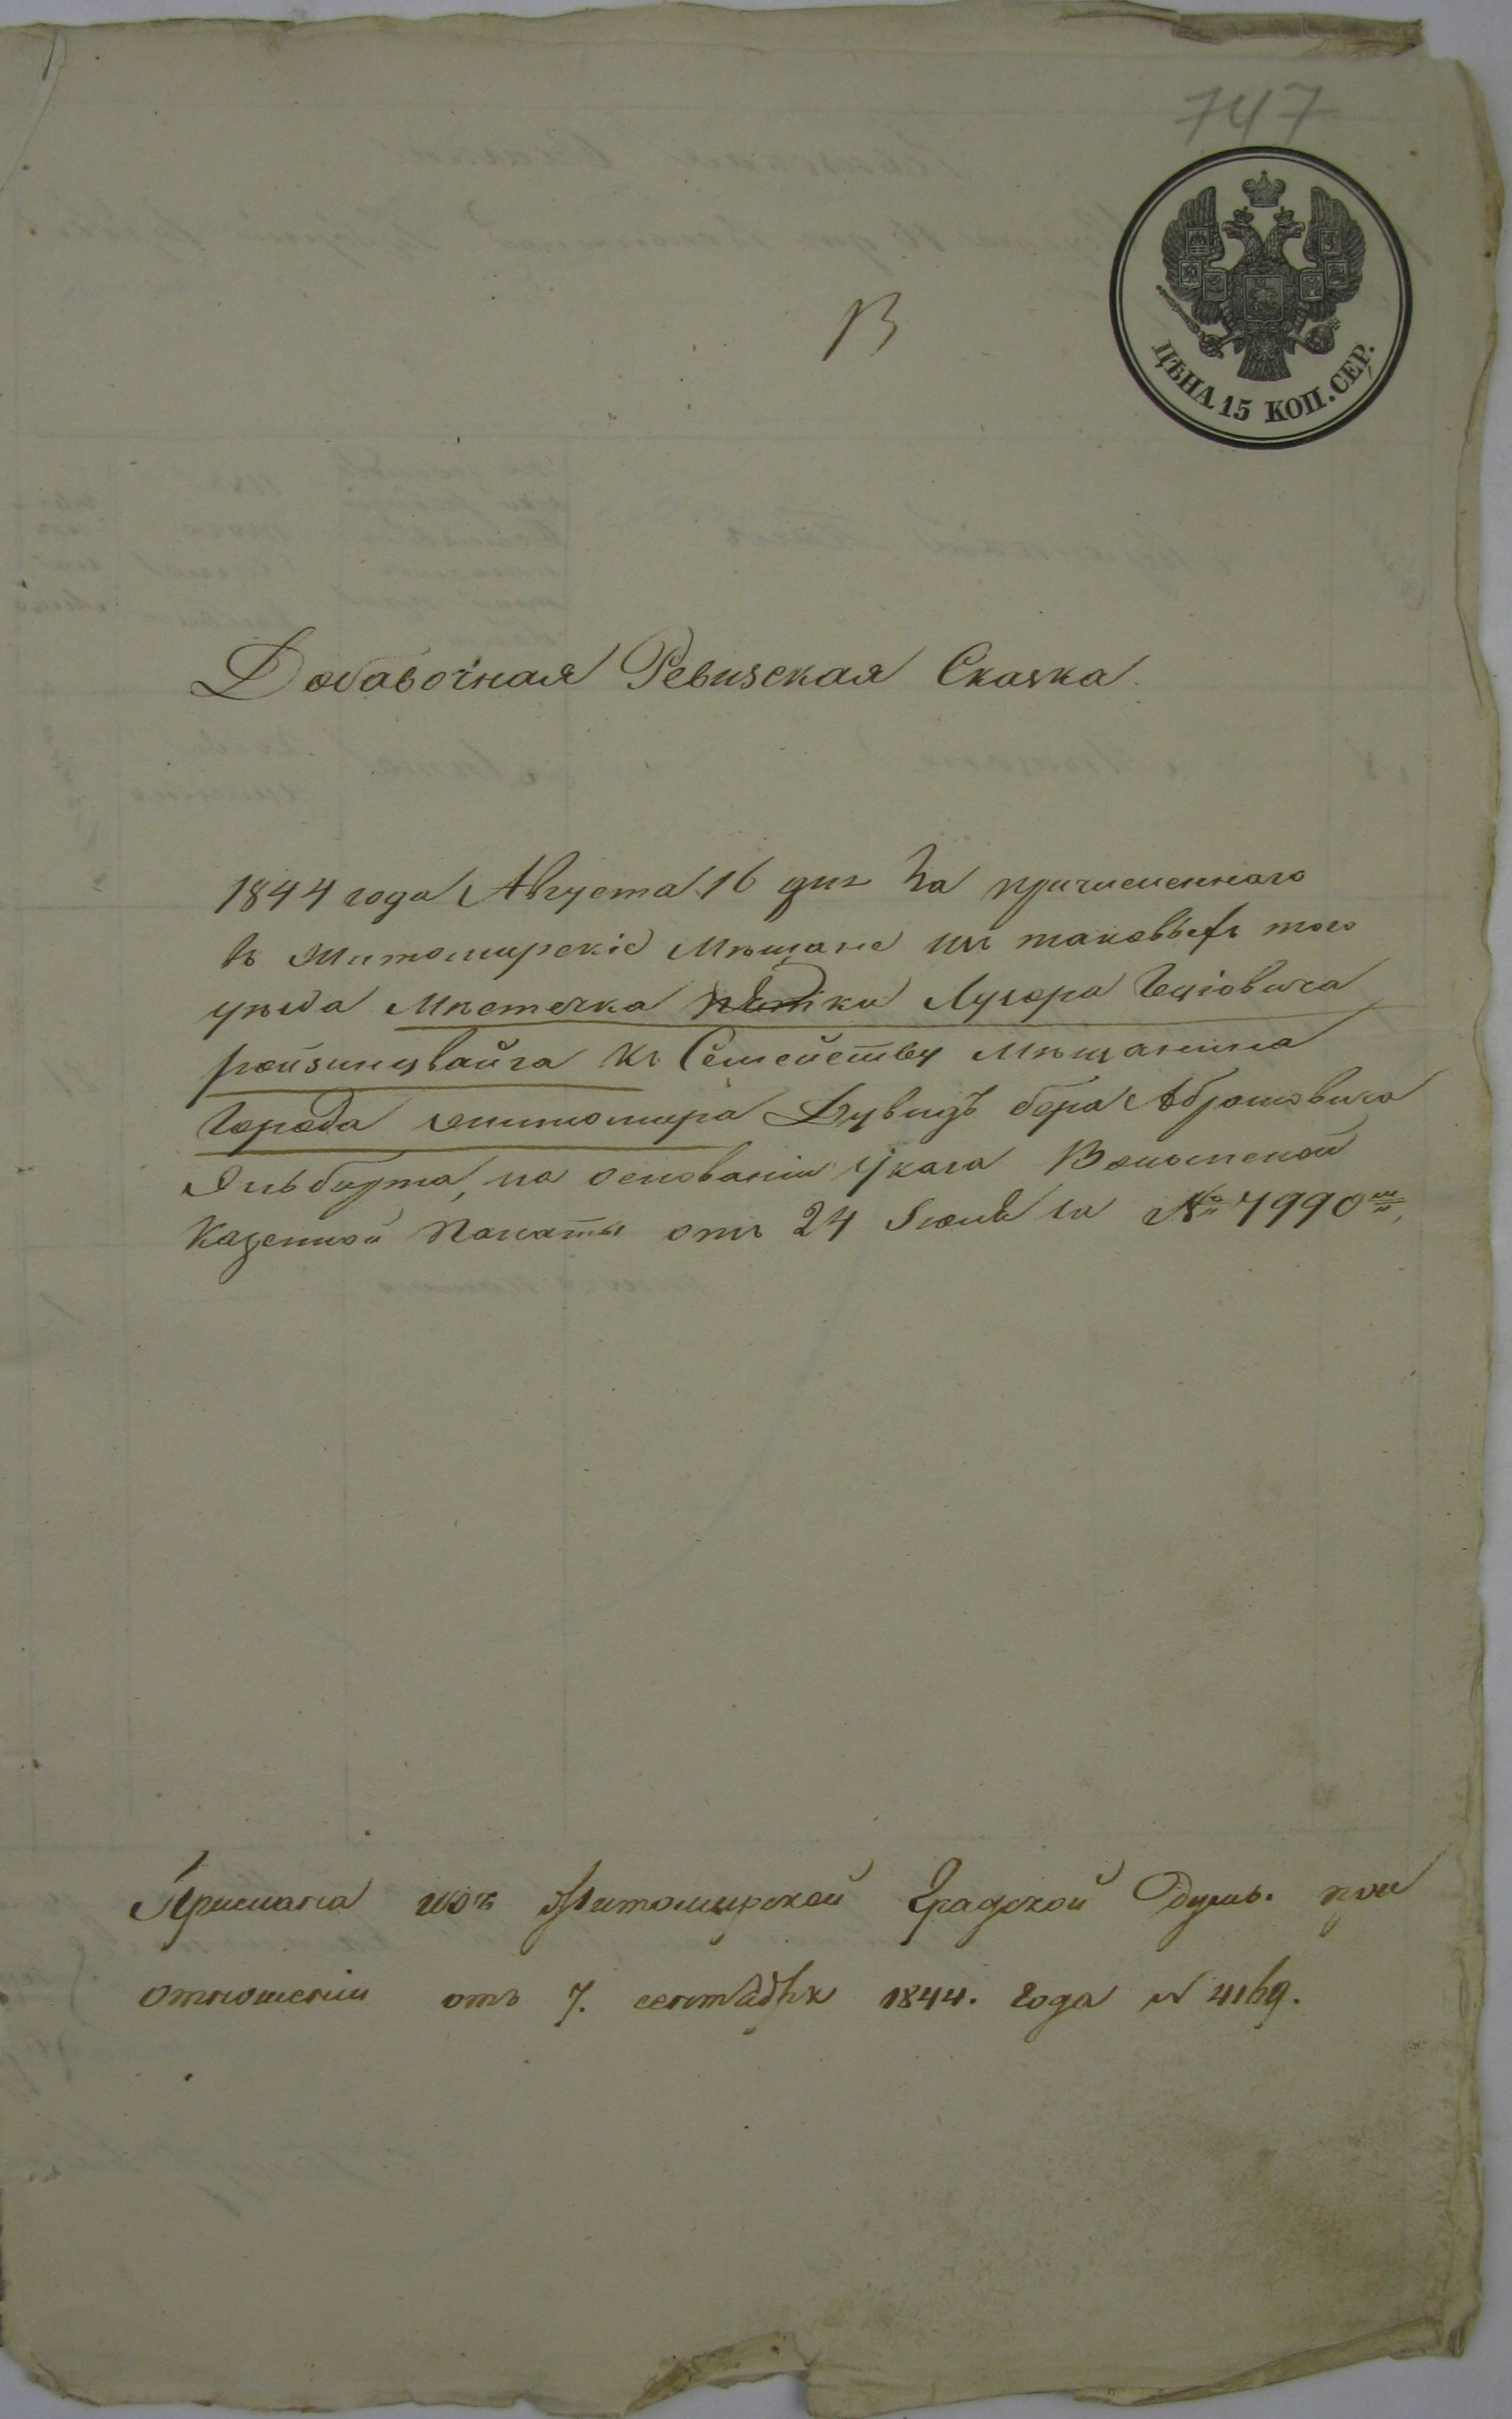 747
В
ЦѢНА 15 КОП. СЕР.
Добавочная Ревизская Сказка
1844 года Августа 16 дня За причисленнаго
въ Житомирскіе Мѣщане изъ таковыхъ того
уѣзда Мѣстечка Лугера
ройзинцвайга Къ Семейству Мѣщанина
Города Житомира Дувидъ бера Абрамовича
Эльбирта, на основаніи Указа Волынской
Казенной Палаты отъ 24 Іюля за № 7990
Прислана изъ Житомирской Градской Думы. при
отношеніи отъ 7. сентября 1844. Года N 4169.